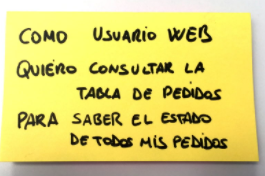 COMO USUARIO WEB
QUIERO CONSULTAR LA
TABLA DE PEDIDOS
PARA SABER EL ESTADO
DE TODOS MIS PEDIDOS